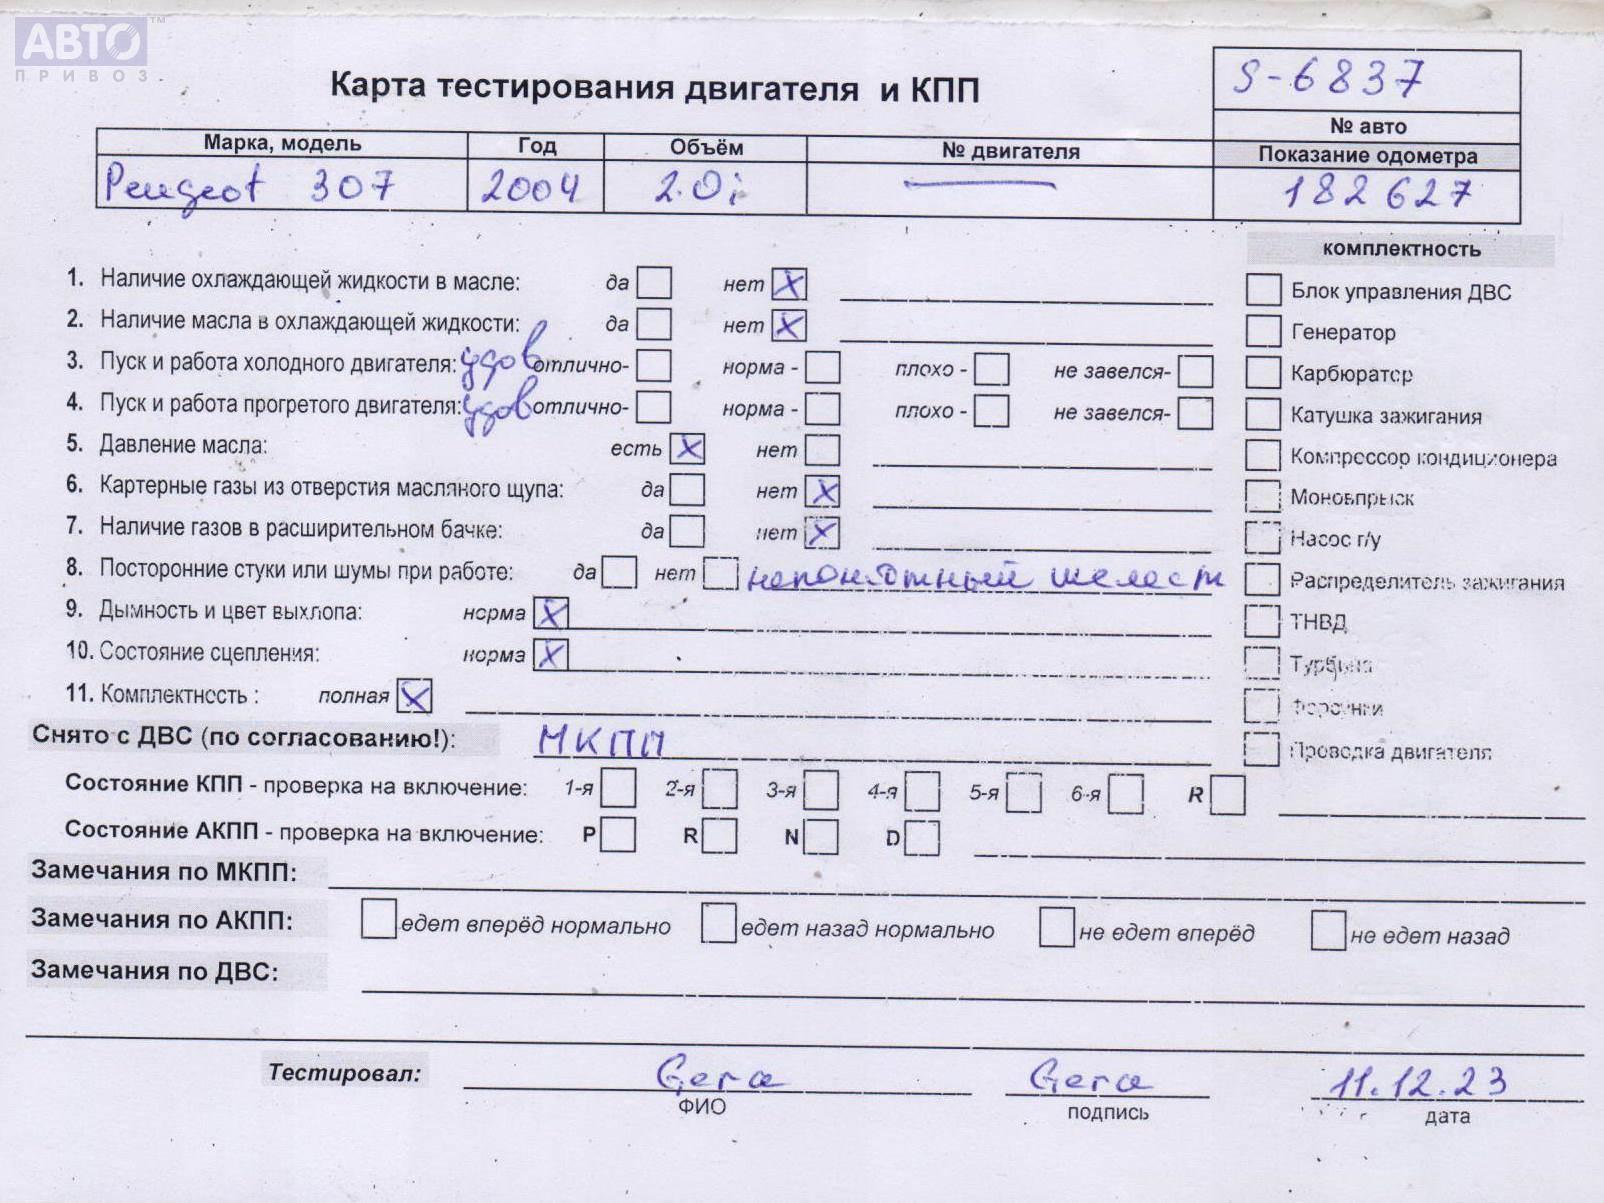 АВТО™
ПРИВОЗ
Карта тестирования двигателя и КПП
S-6837
№ авто
Марка, модель Год Объём № двигателя Показание одометра
Peugeot 307 2004 2.0i — 182627
комплектность
1. Наличие охлаждающей жидкости в масле: да нет X Блок управления ДВС
2. Наличие масла в охлаждающей жидкости: да нет X Генератор
3. Пуск и работа холодного двигателя: удов отлично- норма - плохо - не завелся- Карбюратор
4. Пуск и работа прогретого двигателя: удов отлично- норма - плохо - не завелся- Катушка зажигания
5. Давление масла: есть X нет Компрессор кондиционера
6. Картерные газы из отверстия масляного щупа: да нет X Моновпрыск
7. Наличие газов в расширительном бачке: да нет X Насос г/у
8. Посторонние стуки или шумы при работе: да нет непонятный шелест Распределитель зажигания
9. Дымность и цвет выхлопа: норма X ТНВД
10. Состояние сцепления: норма X Турбина
11. Комплектность : полная X Форсунки
Снято с ДВС (по согласованию!): МКПП Проводка двигателя
Состояние КПП - проверка на включение: 1-я 2-я 3-я 4-я 5-я 6-я R
Состояние АКПП - проверка на включение: P R N D
Замечания по МКПП:
Замечания по АКПП: едет вперёд нормально едет назад нормально не едет вперёд не едет назад
Замечания по ДВС:
Тестировал: Gera Gera 11.12.23
ФИО подпись дата